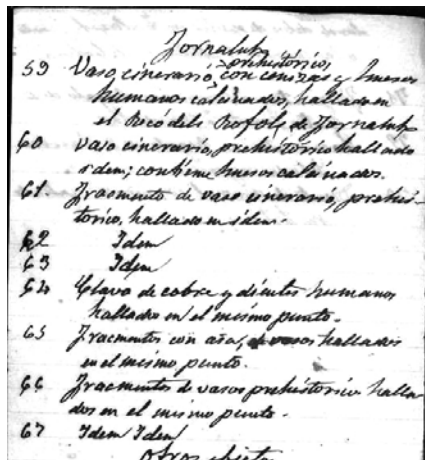 Fornalutx
59 Vaso cinerario, prehistórico, con cenizas y huesos
humanos calcinados, hallado en
el Rocó dels Rofols de Fornalutx
60 Vaso cinerario, prehistorico hallado
idem; contiene huesos calcinados.
61. Fragmento de vaso cinerario, prehis-
torico, hallado en idem.
62 Idem
63 Idem
64 Clavo de cobre y dientes humanos
hallados en el mismo punto.
65 Fragmentos con asa, de vasos hallados
en el mismo punto.
66 Fragmentos de vasos prehistoricos halla-
dos en el mismo punto.
67 Idem Idem
Otros objetos